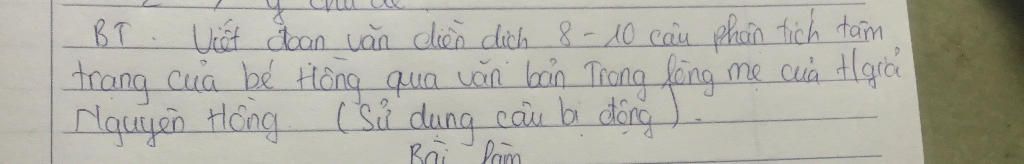 y chủ đề
BT. Viết đoạn văn diễn dịch 8-10 câu phân tích tâm
trạng của bé Hồng qua văn bản Trong lòng mẹ của
Nguyên Hồng. (Sử dụng câu bị động).
Bài làm